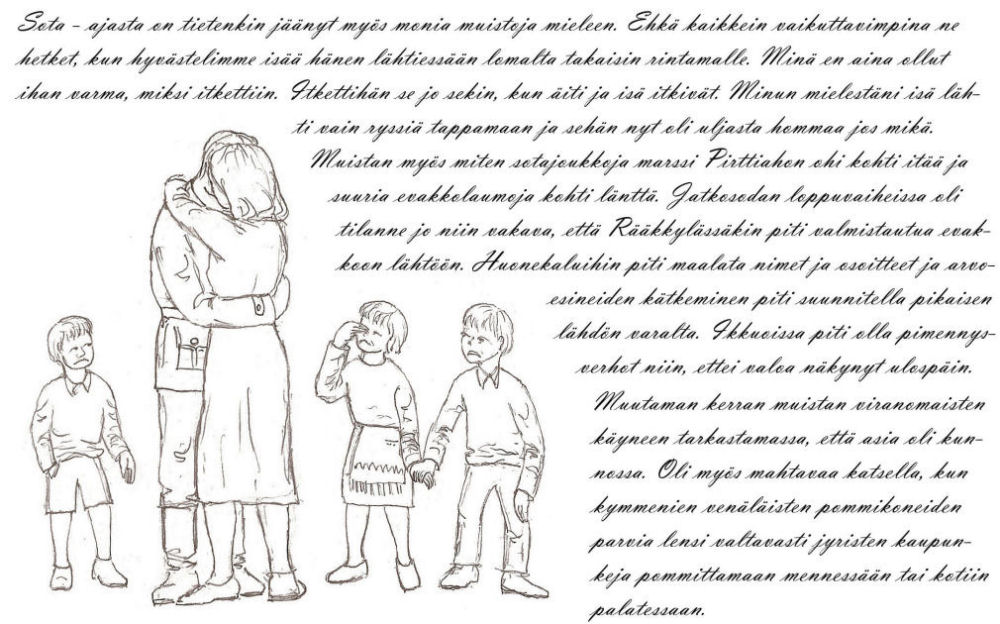 Sota - ajasta on tietenkin jäänyt myös monia muistoja mieleen. Ehkä kaikkein vaikuttavimpina ne
hetket, kun hyvästelimme isää hänen lähtiessään lomalta takaisin rintamalle. Minä en aina ollut
ihan varma, miksi itkettiin. Itkettihän se jo sekin, kun äiti ja isä itkivät. Minun mielestäni isä läh-
ti vain ryssiä tappamaan ja sehän nyt oli uljasta hommaa jos mikä.
Muistan myös miten sotajoukkoja marssi Pirttiahon ohi kohti itää ja
suuria evakkolaumoja kohti länttä. Jatkosodan loppuvaiheissa oli
tilanne jo niin vakava, että Rääkkylässäkin piti valmistautua evak-
koon lähtöön. Huonekaluihin piti maalata nimet ja osoitteet ja arvo-
esineiden kätkeminen piti suunnitella pikaisen
lähdön varalta. Ikkuoissa piti olla pimennys-
verhot niin, ettei valoa näkynyt ulospäin.
Muutaman kerran muistan viranomaisten
käyneen tarkastamassa, että asia oli kun-
nossa. Oli myös mahtavaa katsella, kun
kymmenien venäläisten pommikoneiden
parvia lensi valtavasti jyristen kaupun-
keja pommittamaan mennessään tai kotiin
palatessaan.